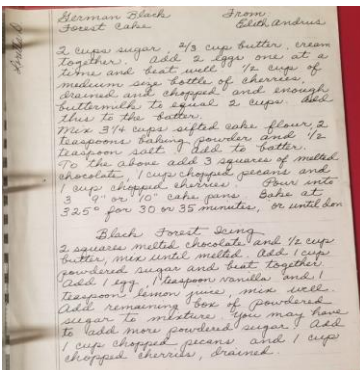 German Black From
Forest Cake Edith Andrus
2 cups sugar, 2/3 cup butter, cream
together. Add 2 eggs one at a
time and beat well. 1/2 cup of
medium size bottle of cherries,
drained and chopped and enough
buttermilk to equal 2 cups. Add
this to the batter.
Mix 3 1/4 cups sifted cake flour, 2
teaspoons baking powder and 1/2
teaspoon salt. Add to batter.
To the above add 3 squares of melted
chocolate, 1 cup chopped pecans and
1 cup chopped cherries. Pour into
3 9" or 10" cake pans. Bake at
325° for 30 or 35 minutes, or until don
Black Forest Icing
2 squares melted chocolate and 1/2 cup
butter, mix until melted. Add 1 cup
powdered sugar and beat together
Add 1 egg, 1 teaspoon vanilla and 1
teaspoon lemon juice, mix well.
Add remaining box of powdered
sugar to mixture. You may have
to add more powdered sugar. Add
1 cup chopped pecans and 1 cup
chopped cherries, drained.